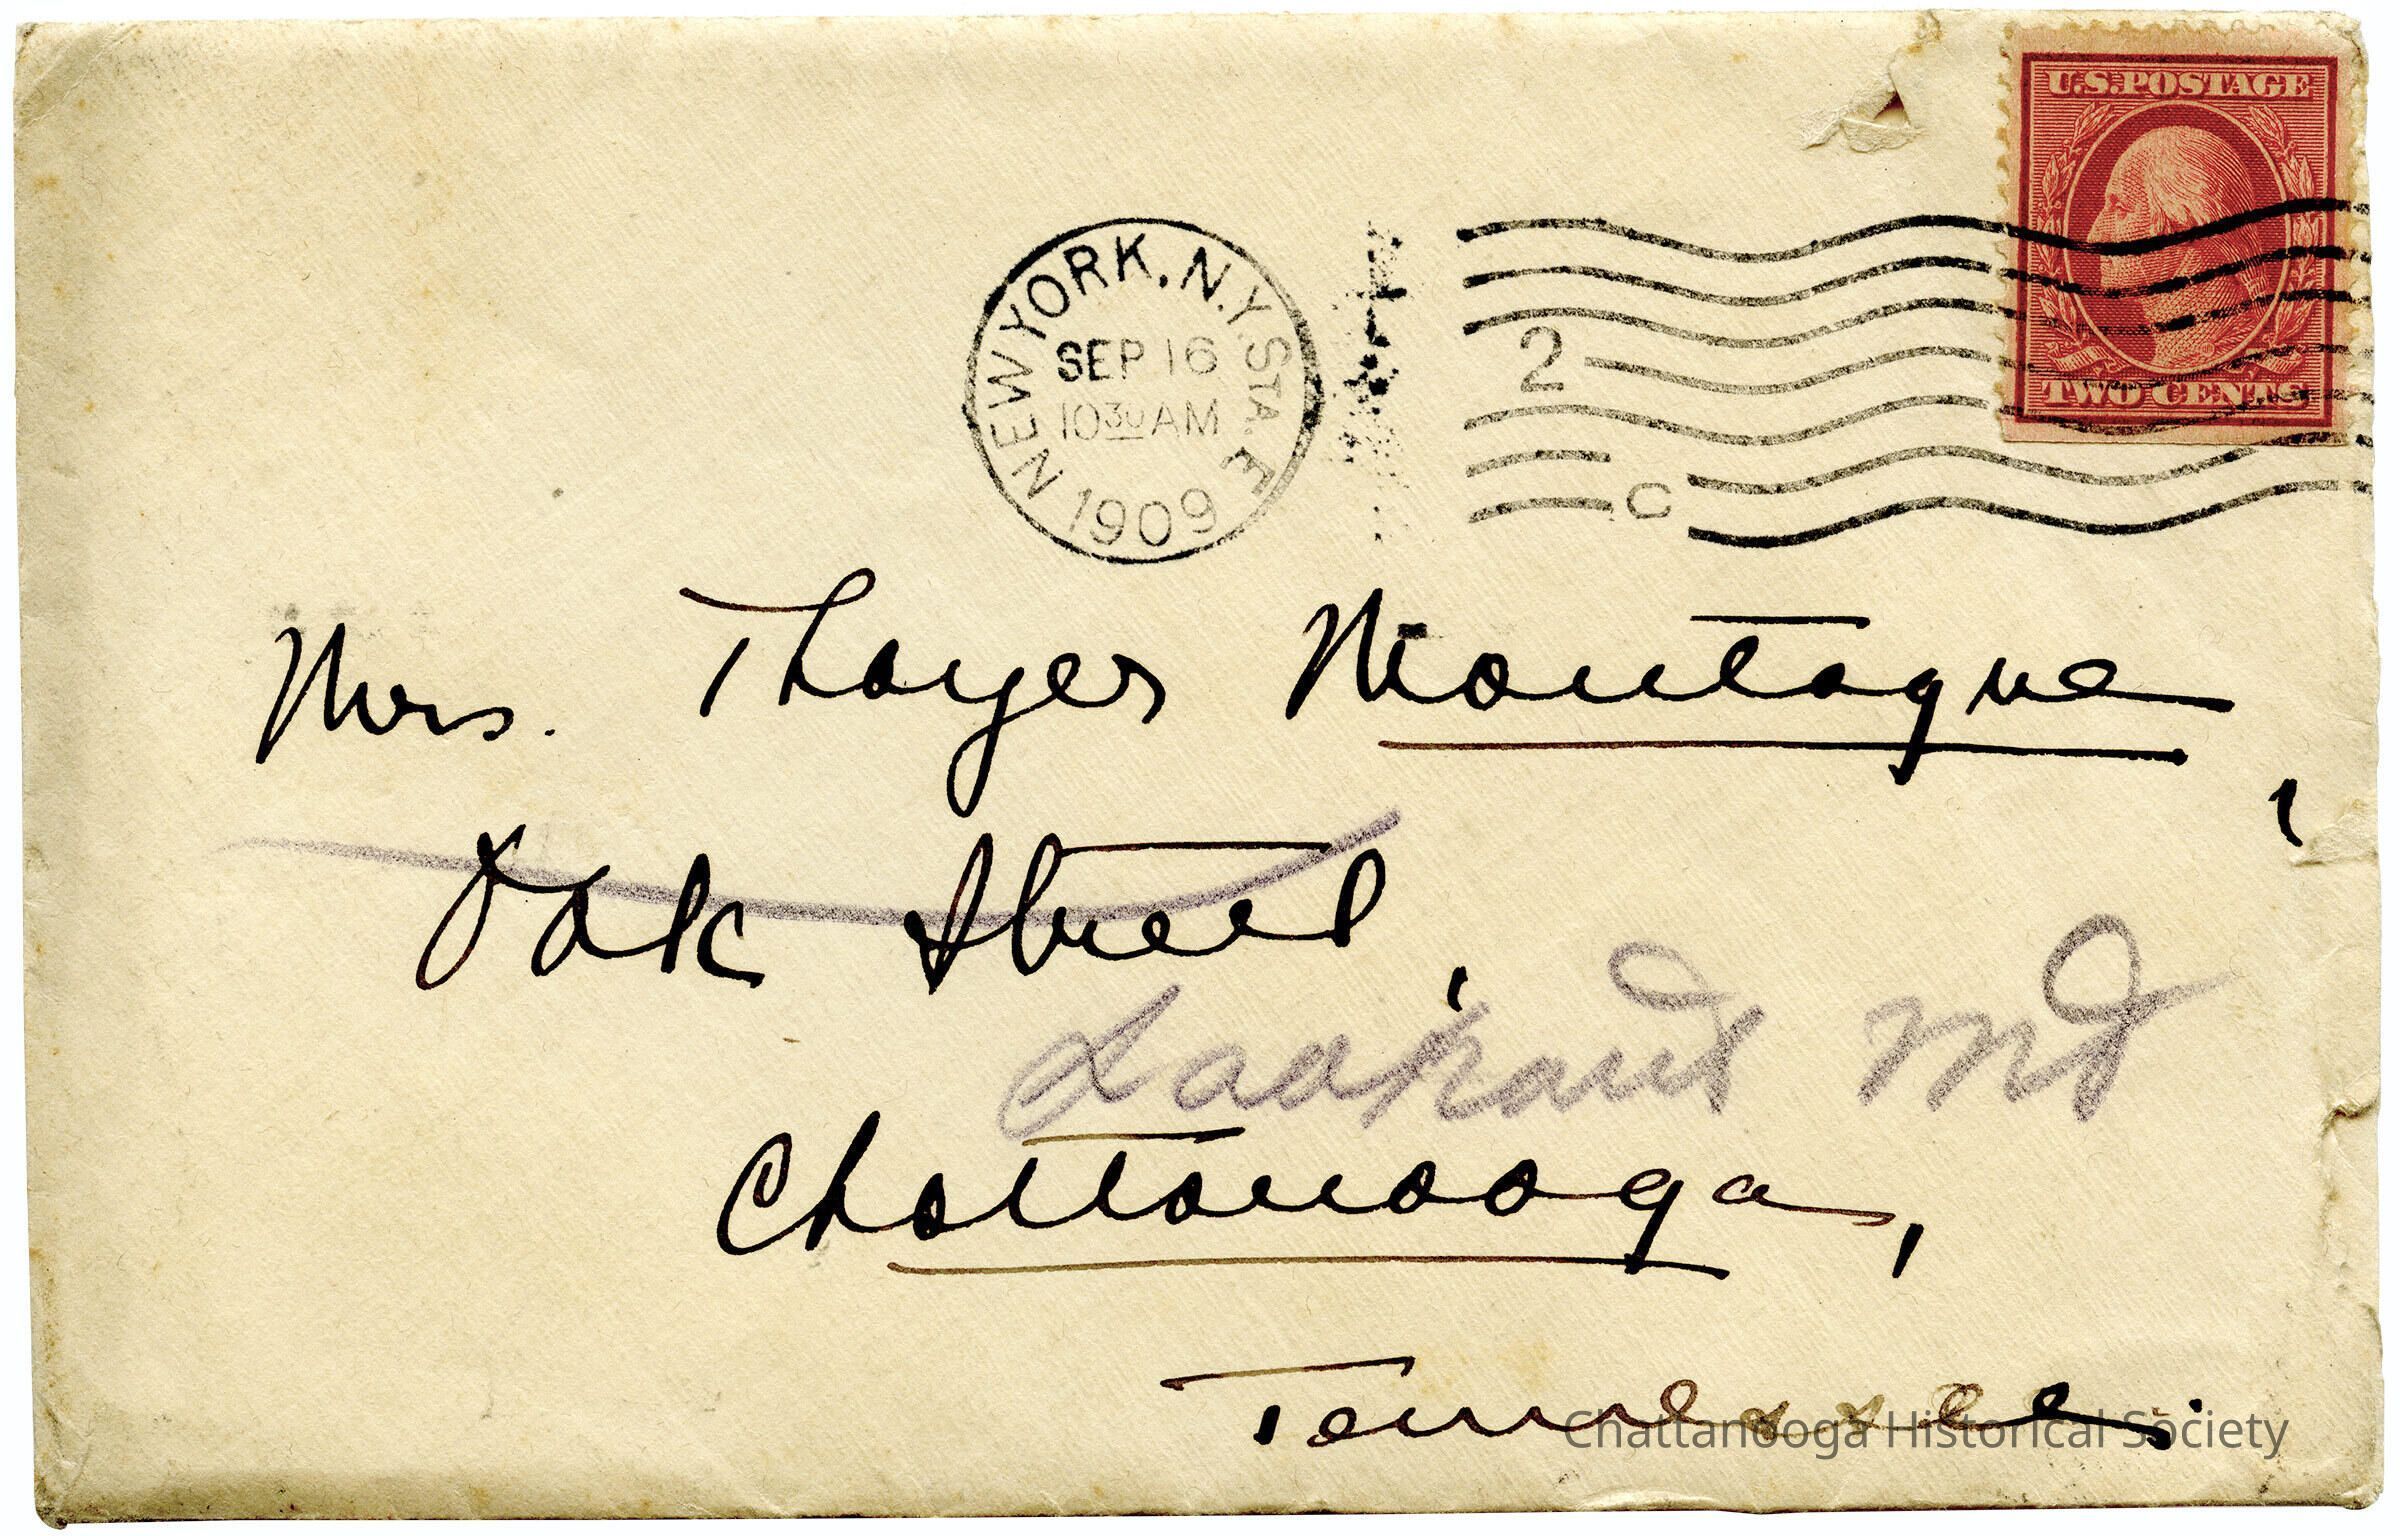 U.S. POSTAGE
TWO CENTS
NEW YORK, N.Y. STA. F
SEP 16
10 30 AM
1909
2
C
Mrs. Thayer Montague,
Oak Street,
Lookout Mt
Chattanooga,
Tennessee.
Chattanooga Historical Society